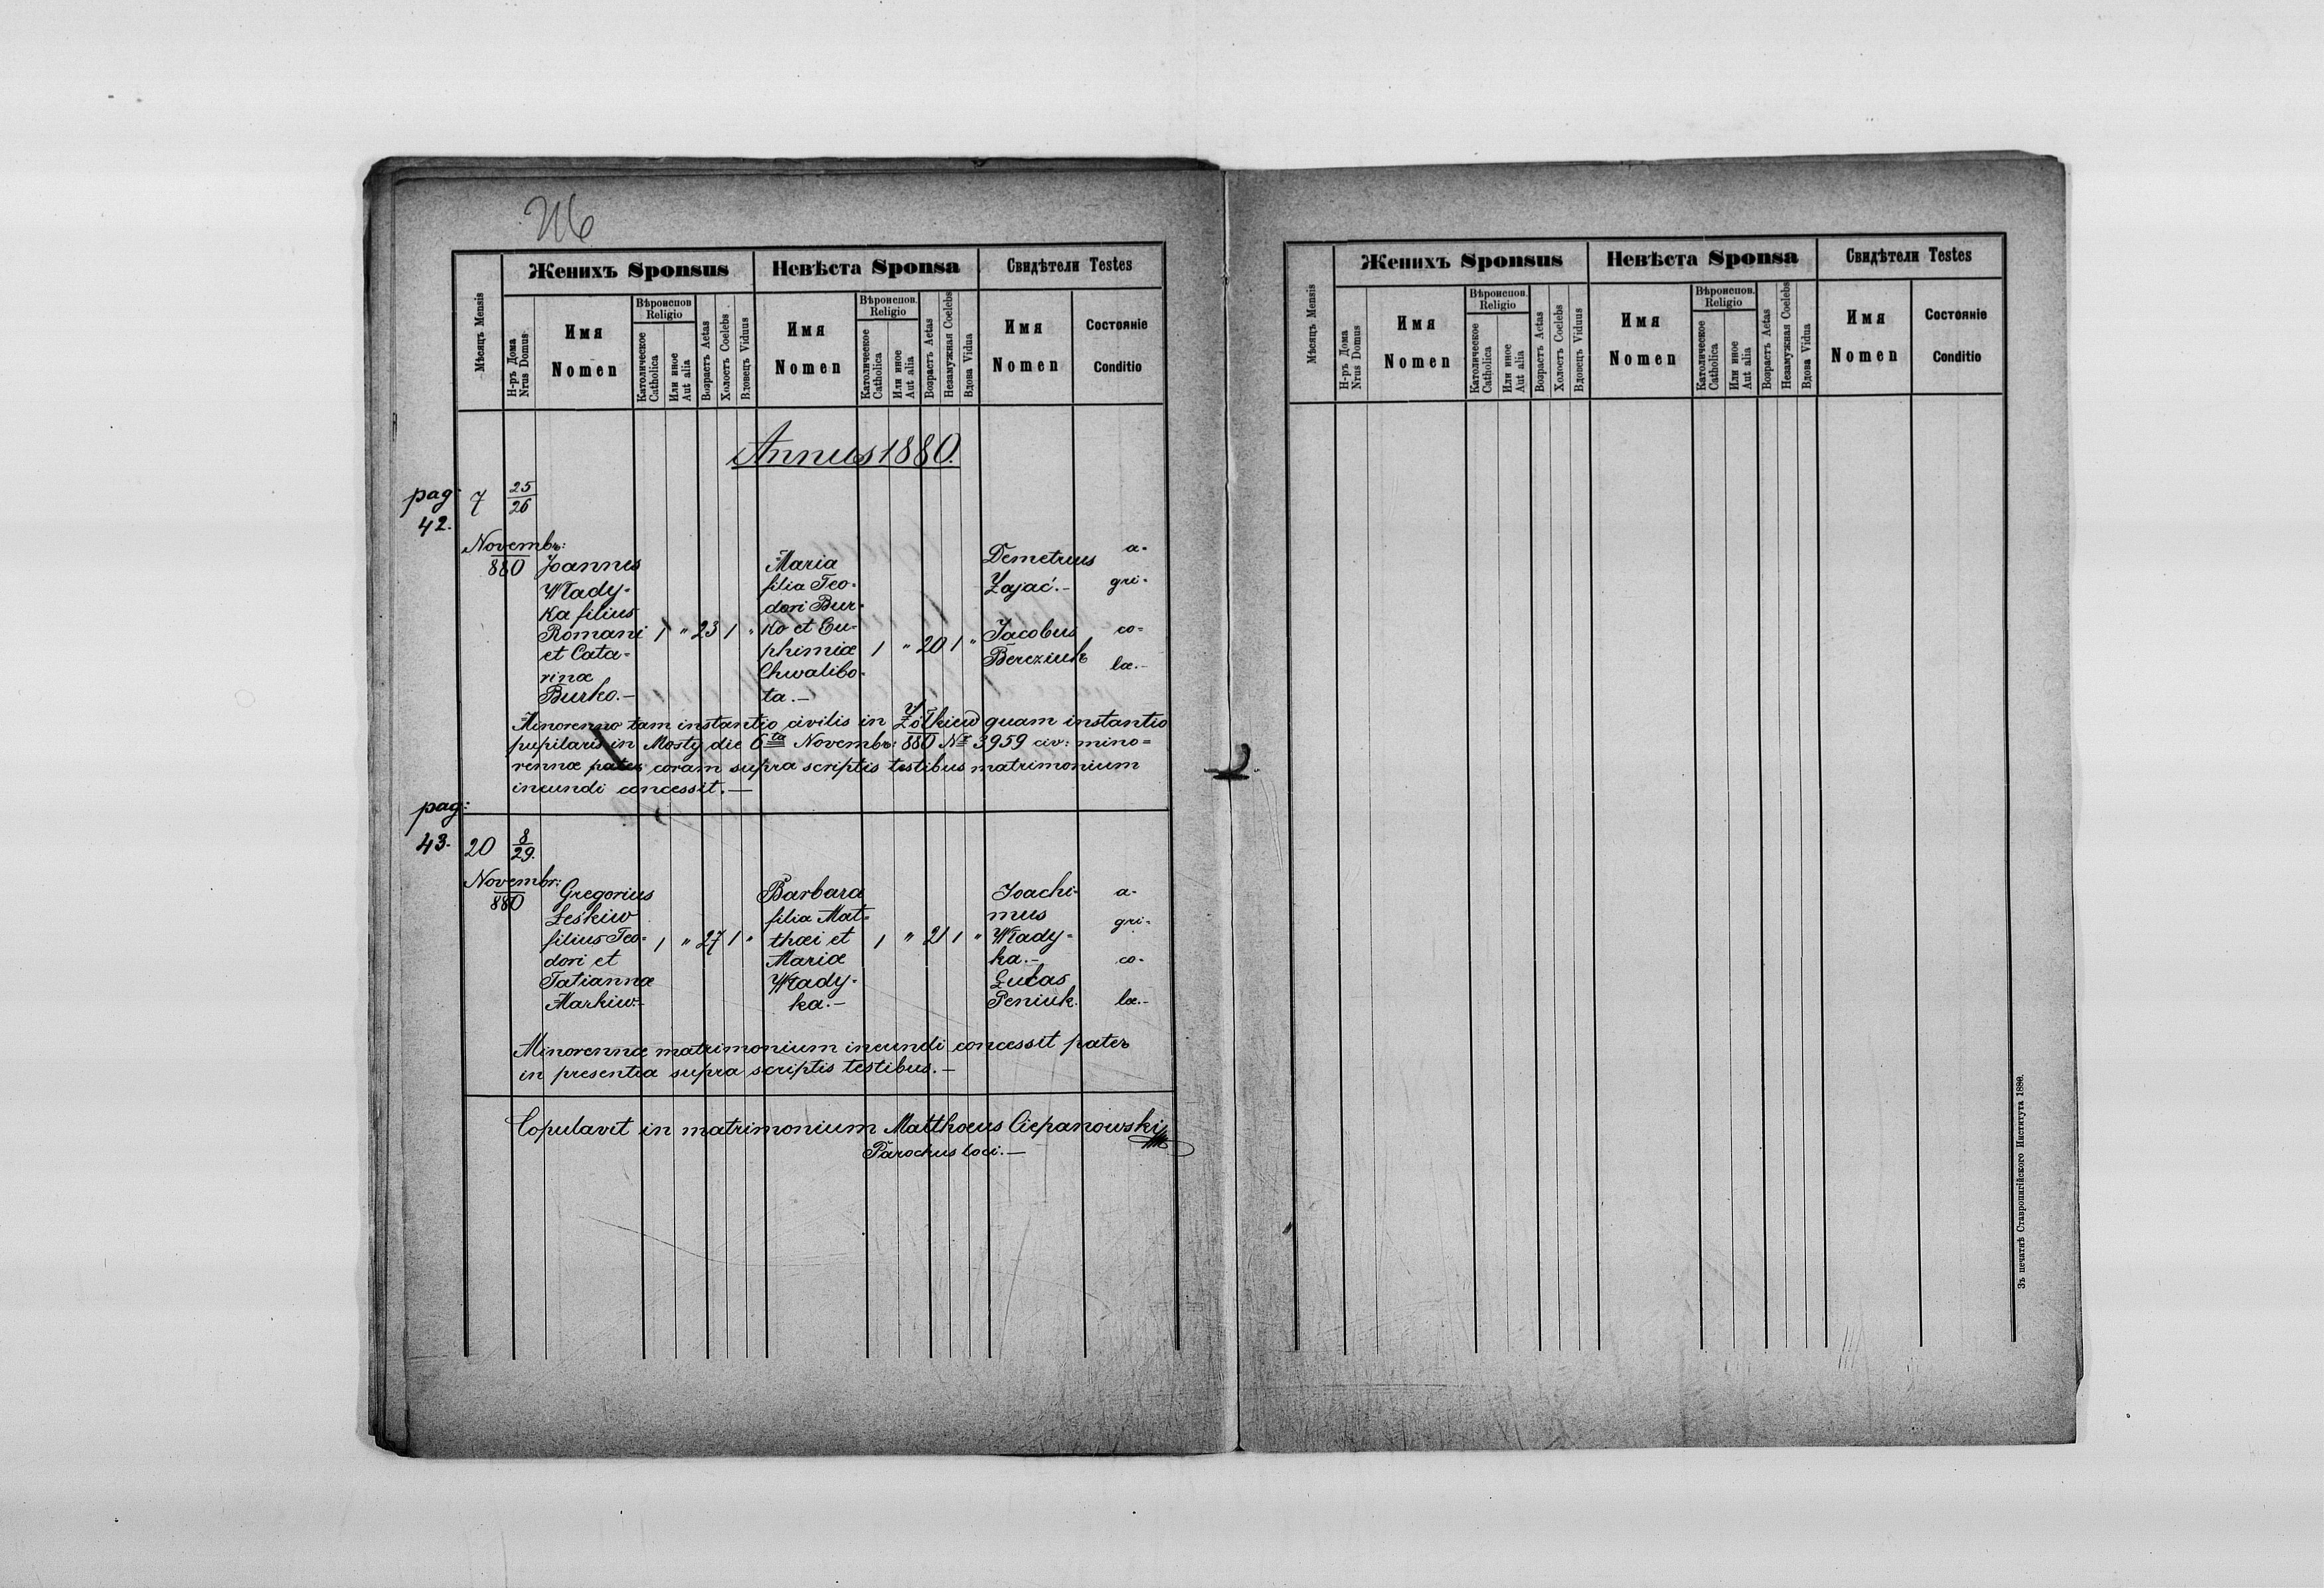 216
Женихъ Sponsus
Невѣста Sponsa
Свидѣтели Testes
Мѣсяцъ Mensis
Н-ръ Дома
Nrus Domus
Имя
Nomen
Вѣроиспов.
Religio
Католическое
Catholica
Или иное
Aut alia
Возрастъ Aetas
Холостъ Coelebs
Вдовецъ Viduus
Имя
Nomen
Вѣроиспов.
Religio
Католическое
Catholica
Или иное
Aut alia
Возрастъ Aetas
Незамужная Coelebs
Вдова Vidua
Имя
Nomen
Состояніе
Conditio
Annus 1880.
pag: 42.
7 25/26
Novembr: 880
Joannes
Włady-
ka filius
Romani
et Cata-
rinæ
Burko.-
1 " 23 1 "
Maria
filia Teo-
dori Bur-
ko et Eu-
phimiæ
Chwalibo-
ta.-
1 " 20 1 "
Demetrius
Zajac.-
Jacobus
Bereziuk
a-
gri-
co-
læ.-
Minorenno tam instantio civilis in Żołkiew quam instantio
pupilaris in Mosty die 6ta Novembr: 880 Nr 3959 civ: mino=
rennæ pater coram supra scriptis testibus matrimonium
ineundi concessit.-
pag: 43.
20 8/29.
Novembr: 880
Gregorius
Leskiw
filius Teo-
dori et
Tatiannæ
Markiw.-
1 " 27 1 "
Barbara
filia Mat-
thæi et
Mariæ
Włady-
ka.-
1 " 21 1 "
Joachi-
mus
Włady-
ka.-
Lucas
Peniuk.
a-
gri-
co-
læ.-
Minorennæ matrimonium ineundi concessit pater
in presentia supra scriptis testibus.-
Copulavit in matrimonium Matthæus Ciepanowski
Parochus loci.-
Женихъ Sponsus
Невѣста Sponsa
Свидѣтели Testes
Мѣсяцъ Mensis
Н-ръ Дома
Nrus Domus
Имя
Nomen
Вѣроиспов.
Religio
Католическое
Catholica
Или иное
Aut alia
Возрастъ Aetas
Холостъ Coelebs
Вдовецъ Viduus
Имя
Nomen
Вѣроиспов.
Religio
Католическое
Catholica
Или иное
Aut alia
Возрастъ Aetas
Незамужная Coelebs
Вдова Vidua
Имя
Nomen
Состояніе
Conditio
Зъ печатнѣ Ставропигійского Института 1880.